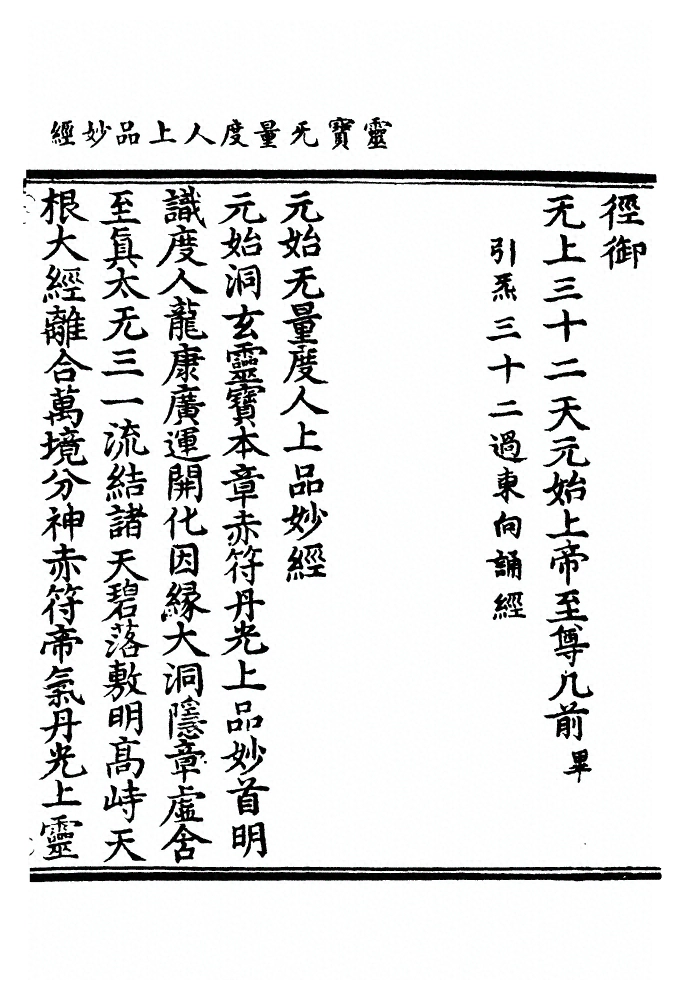 靈寶无量度人上品妙經
徑御
无上三十二天元始上帝至尊几前畢
引炁三十二過東向誦經
元始无量度人上品妙經
元始洞玄靈寶本章赤符丹光上品妙首明
識度人龍康廣運開化因緣大洞隱章虛含
至眞太无三一流結諸天碧落敷明高峙天
根大經離合萬境分神赤符帝氣丹光上靈